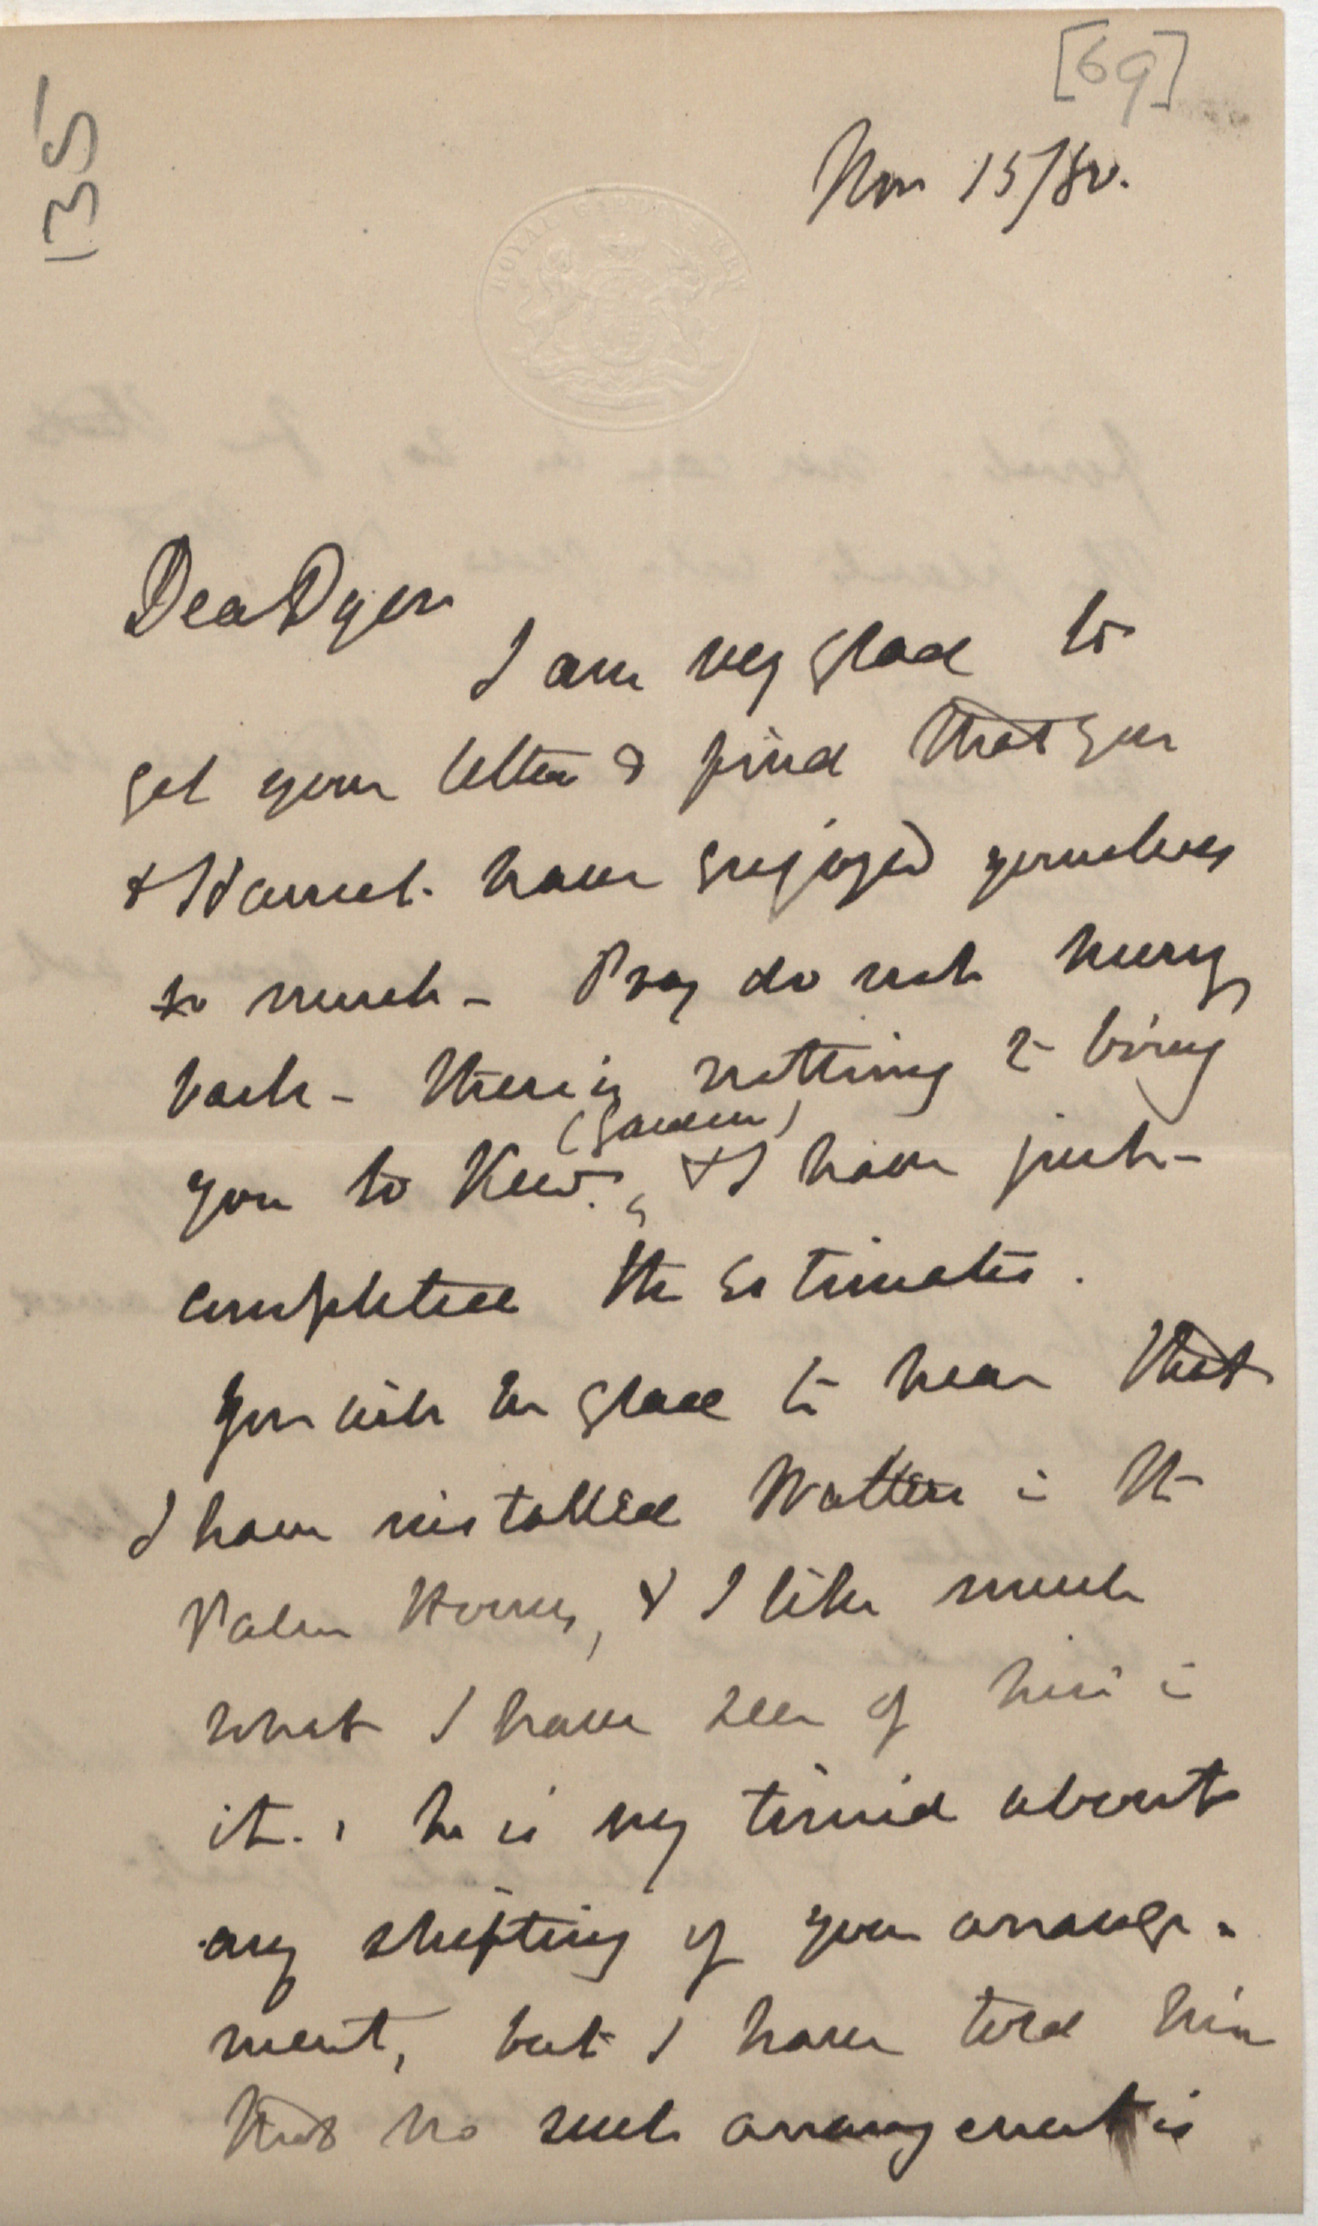 [69]
135
Nov 15/80.
ROYAL GARDENS KEW
Dear Dyer
I am very glad to
get your letter & find that you
& Harriet have enjoyed yourselves
so much - Pray do not hurry
back - there is nothing to bring
you to Kew (Garden), & I have just
completed the Estimates.
You will be glad to hear that
I have installed Watson in the
Palm House, & I like much
what I have seen of him in
it. : he is very timid about
any shifting of your arrange-
ment, but I have told him
that no such arrangement is